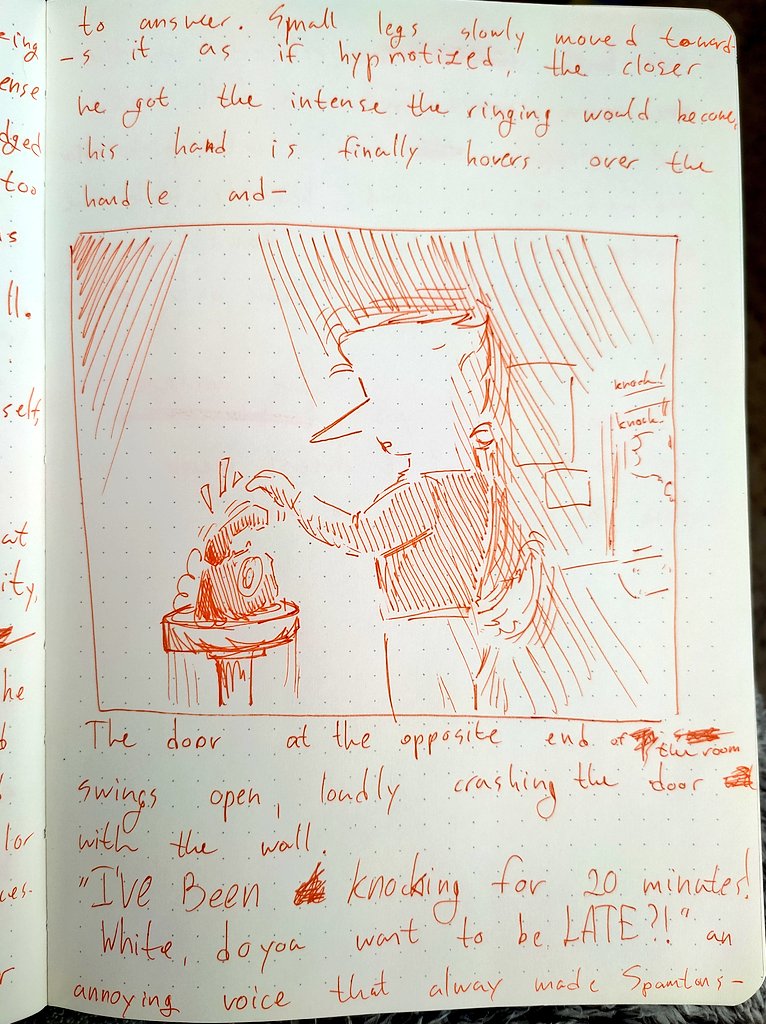 to answer. Small legs slowly moved toward-
-s it as if hypnotized, the closer
he got the intense the ringing would become,
his hand is finally hovers over the
handle and-
knock!
knock!!
The door at the opposite end of the room
swings open, loudly crashing the door
with the wall.
"I've Been knocking for 20 minutes!
White, do you want to be LATE?!" an
annoying voice that alway made Spamtons-
ense
dged
too
ll.
self,
at
ity,
he